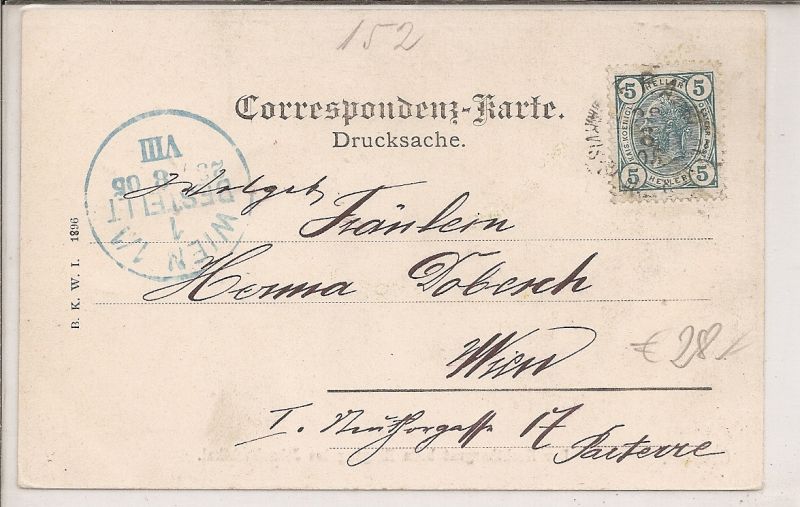 152
Correspondenz-Karte.
Drucksache.
5 HELLER 5
5 HELLER 5
WIEN 1/1
BESTELLT
1
8 05
VIII
B. K. W. I. 1896
Wolgeb
Fräulein
Herma Dobesch
Wien
€ 28
I. Neuthorgasse 17
Parterre